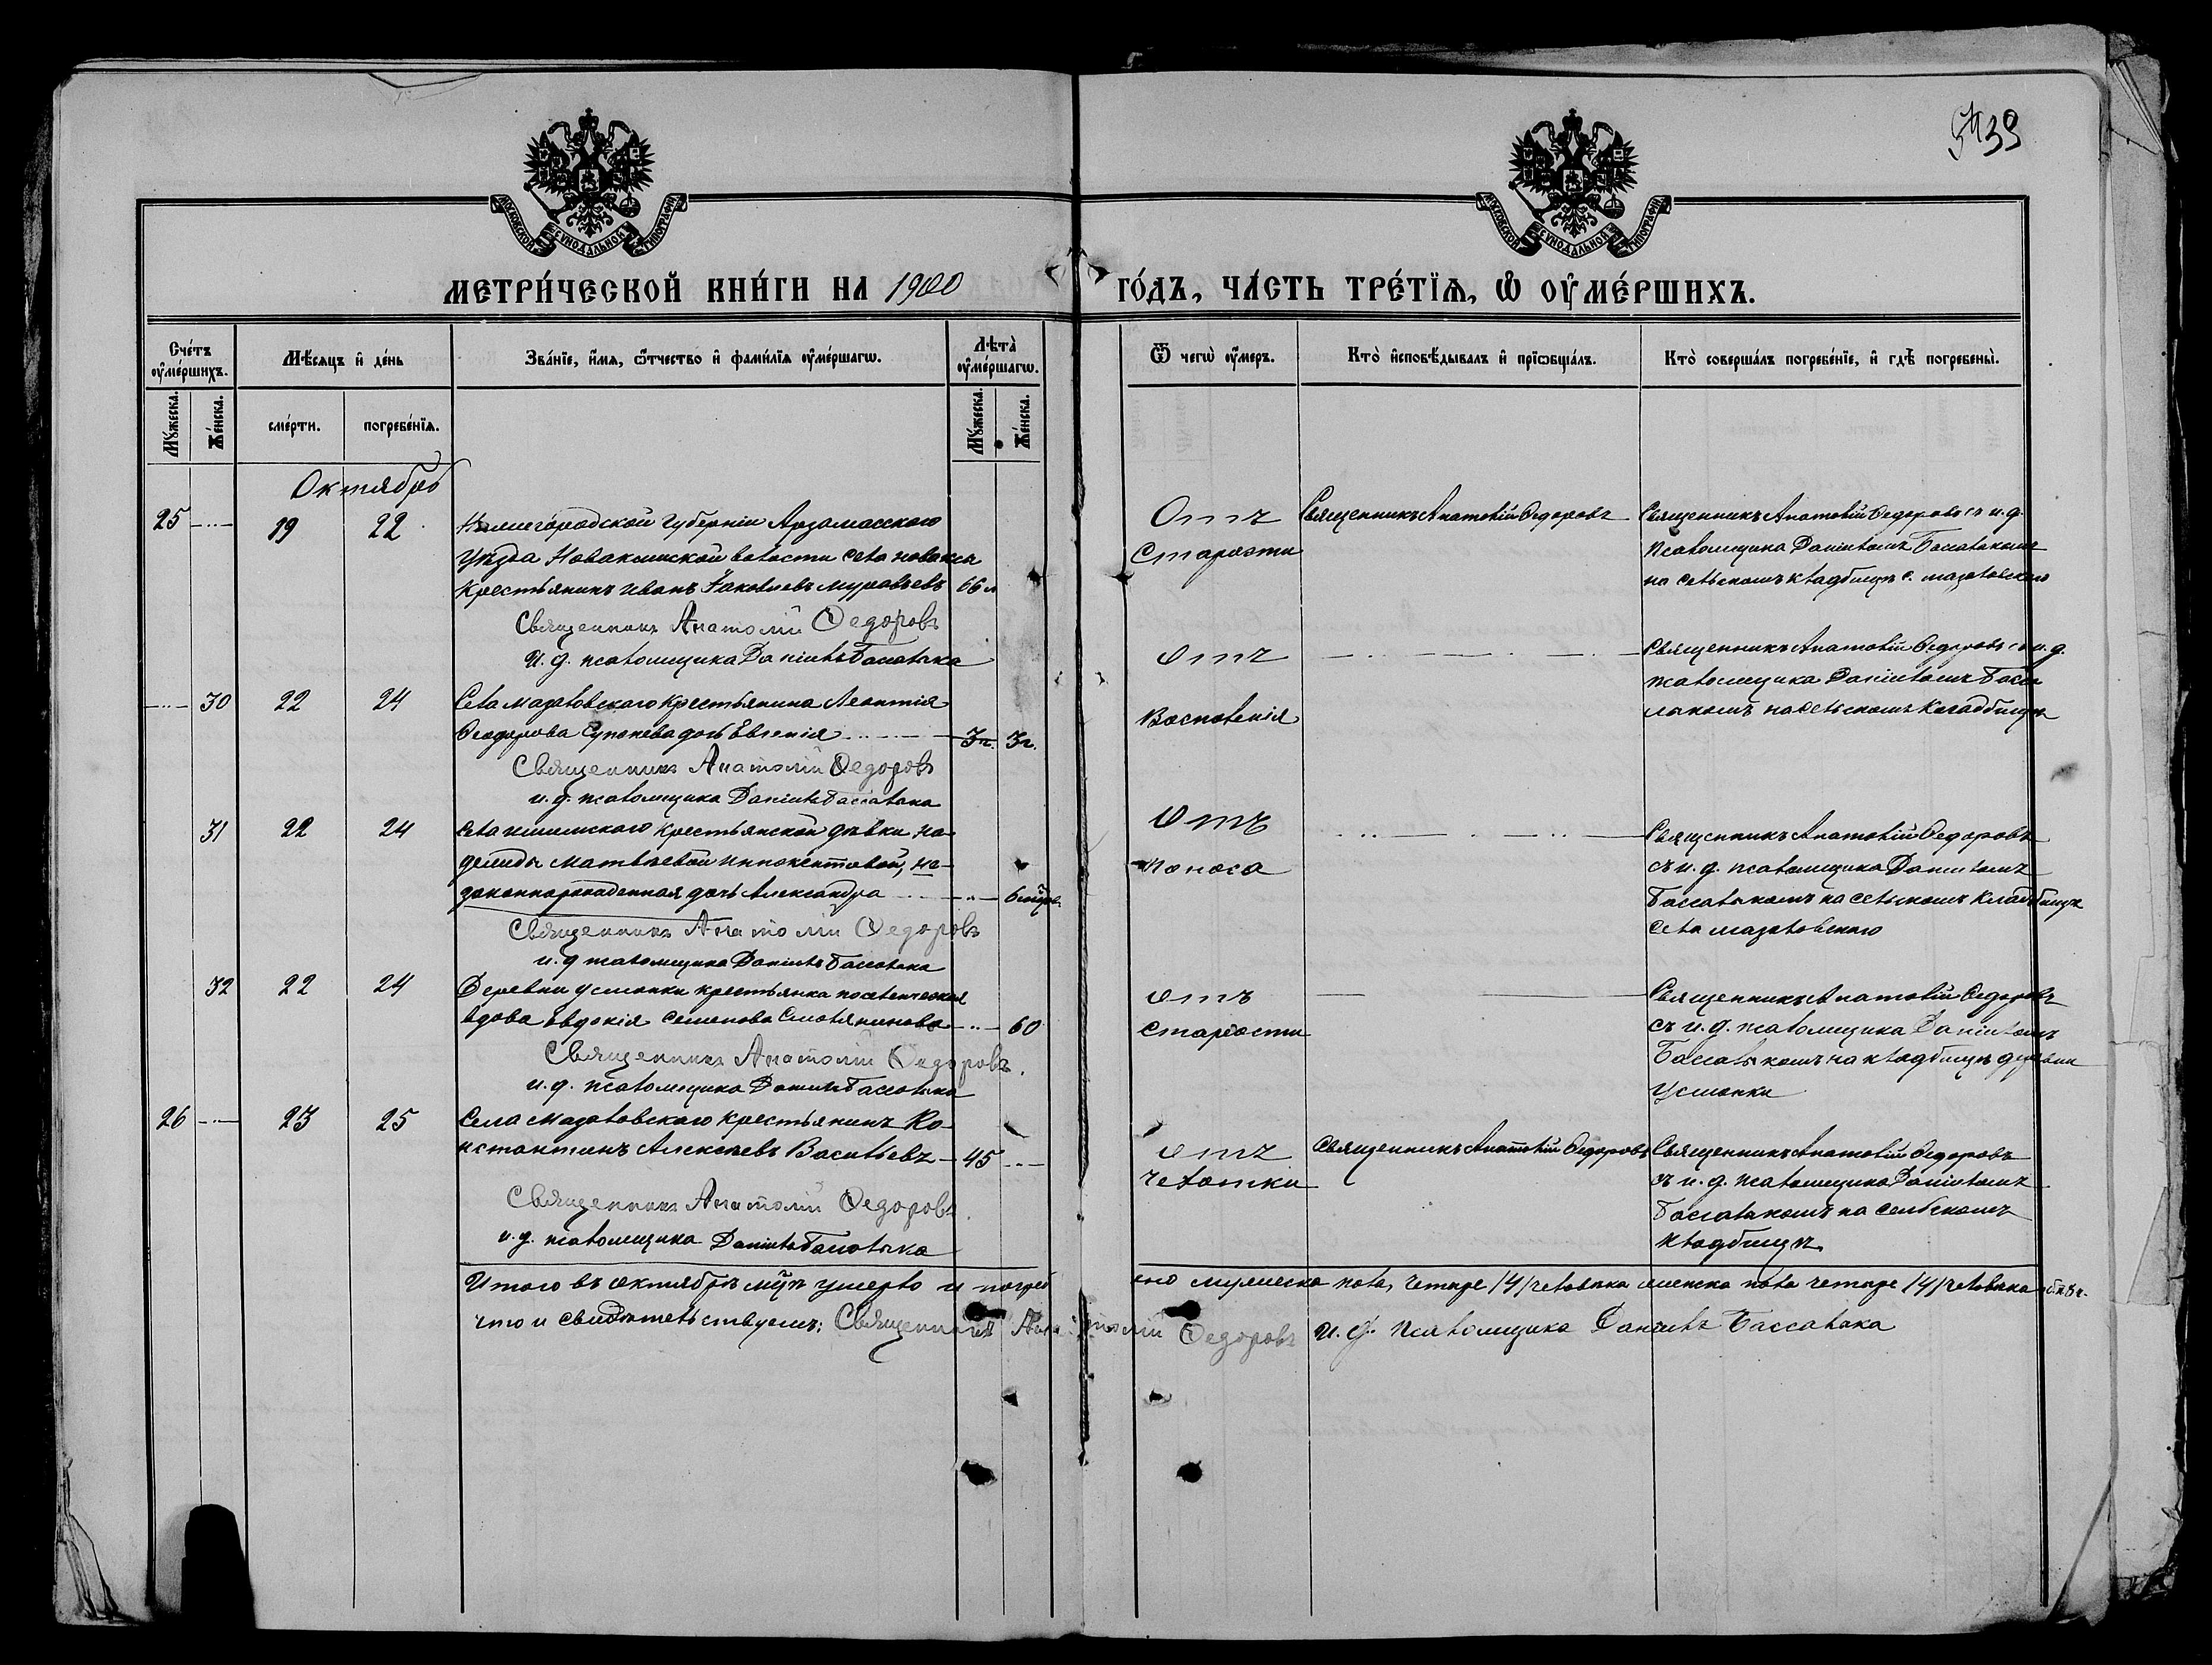 539
МОСКОВСКОЙ СѴНОДАЛЬНОЙ ТИПОГРАФІИ
МОСКОВСКОЙ СѴНОДАЛЬНОЙ ТИПОГРАФІИ
МЕТРИ́ЧЕСКОЙ КНИ́ГИ НА 1900 ГО́ДЪ, ЧА́СТЬ ТРЕ́ТЇѦ, Ѡ ОУ҆МЕ́РШИХЪ.
Сче́тъ оу҆ме́ршихъ.
Мѣ́сѧцъ и҆ де́нь
Зва́нїе, и҆́мѧ, ѻ҆́тчество и҆ фами́лїѧ оу҆ме́ршагѡ.
Лѣта̀ оу҆ме́ршагѡ.
Ѿ чегѡ̀ оу҆́меръ.
Кто̀ и҆сповѣ́дывалъ и҆ прїѡбща́лъ.
Кто̀ соверша́лъ погребе́нїе, и҆ гдѣ̀ погребены̀.
Мꙋ́жеска.
Же́нска.
сме́рти.
погребе́нїѧ.
Мꙋ́жеска.
Же́нска.
Октябрь
25 19 22 Нижегородской губерніи Арзамасскаго
уѣзда Новакшинской волости села новакса
Крестьянинъ иванъ Іаковлевъ муравьевъ 66 л
Священникъ Анатолій Федоровъ
И. д. псаломщика Даніилъ Бассалыка
Отъ
Старости
Священникъ Анатолій Федоровъ
Священникъ Анатолій Федоровъ съ и.д.
псаломщика Даніиломъ Бассалыкомъ
на сельскомъ кладбищѣ с. мазаловскаго
30 22 24 Села мазаловскаго крестьянина Леонтія
Феодорова Супонева дочь Евгенія 3г. 3г.
Священникъ Анатолій Федоровъ
и. д. псаломщика Даніилъ Бассалыка
отъ
Воспаленія
Священникъ Анатолій Федоровъ съ и.д.
псаломщика Даніиломъ Басса
лыкомъ на сельскомъ Кладбищѣ
31 22 24 Села ишимскаго крестьянской дѣвки на-
дежды матвѣевой иннокентовой, не-
законнорожденная дочь Александра
Священникъ Анатолій Федоровъ
и. д псаломщика Даніилъ Бассалыка
отъ
поноса
Священникъ Анатолій Федоровъ
съ и.д. псаломщика Даніиломъ
Бассалыкомъ на сельскомъ кладбищѣ
села мазаловскаго
32 22 24 Деревни усманки крестьянка
вдова евдокія семенова 60
Священникъ Анатолій Федоровъ.
и. д. псаломщика Даніилъ Бассалыка
отъ
старости
Священникъ Анатолій Федоровъ
съ и.д. псаломщика Даніиломъ
Бассалыкомъ на кладбищѣ деревни
Усманки
26 23 25 Села Мазаловскаго крестьянинъ Ко-
нстантинъ Алексѣевъ Васильевъ 45
Священникъ Анатолій Федоровъ.
и. д. псаломщика Даніилъ Бассалыка
отъ
чахотки
Священникъ Анатолій Федоровъ
Священникъ Анатолій Федоровъ
съ и. д. псаломщика Даніиломъ
Бассалыкомъ на сельскомъ
кладбищѣ
Итого въ октябрѣ мцѣ умерло и погребено мужеска пола, четыре /4/ человѣка женска пола четыре /4/ человѣка
что и свидѣтельствуемъ: Священникъ Анатолій Федоровъ И. д. псаломщика Даніилъ Бассалыка